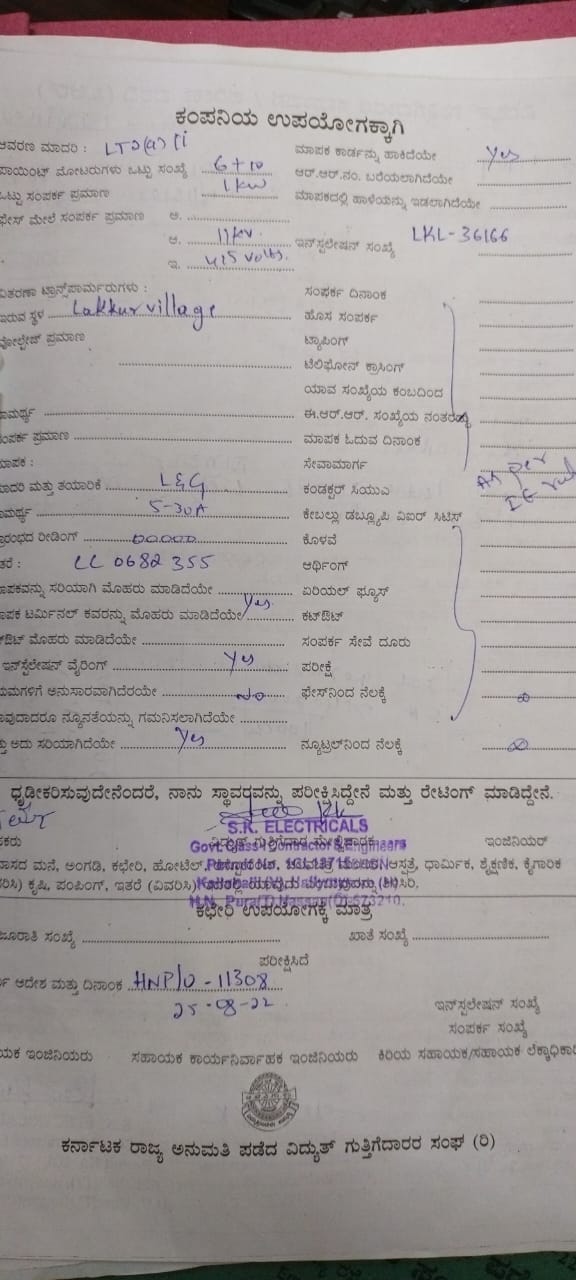 ಕಂಪನಿಯ ಉಪಯೋಗಕ್ಕಾಗಿ
ಆವರಣ ಮಾದರಿ : LT3(a) ಮಾಪಕ ಕಾರ್ಡನ್ನು ಹಾಕಿದೆಯೇ Yes
ಪಾಯಿಂಟ್ ಮೋಟರುಗಳು ಒಟ್ಟು ಸಂಖ್ಯೆ 6+10 ಆರ್.ಆರ್.ನಂ. ಬರೆಯಲಾಗಿದೆಯೇ
ಒಟ್ಟು ಸಂಪರ್ಕ ಪ್ರಮಾಣ 1 kw ಮಾಪಕದಲ್ಲಿ ಹಾಳೆಯನ್ನು ಇಡಲಾಗಿದೆಯೇ
ಫೇಸ್ ಮೇಲೆ ಸಂಪರ್ಕ ಪ್ರಮಾಣ ಅ.
ಆ. 11kv. ಇನ್‌ಸ್ಟಲೇಷನ್ ಸಂಖ್ಯೆ LKL-36166
ಇ. 415 volts.
ವಿತರಣಾ ಟ್ರಾನ್ಸ್‌ಪಾರ್ಮರುಗಳು : ಸಂಪರ್ಕ ದಿನಾಂಕ
ಇರುವ ಸ್ಥಳ Lakkur village ಹೊಸ ಸಂಪರ್ಕ
ವೋಲ್ಟೇಜ್ ಪ್ರಮಾಣ ಟ್ಯಾಪಿಂಗ್
ಟೆಲಿಫೋನ್ ಕ್ರಾಸಿಂಗ್
ಯಾವ ಸಂಖ್ಯೆಯ ಕಂಬದಿಂದ
ಸಾಮರ್ಥ್ಯ ಈ.ಆರ್.ಆರ್. ಸಂಖ್ಯೆಯ ನಂತರ
ಸಂಪರ್ಕ ಪ್ರಮಾಣ ಮಾಪಕ ಓದುವ ದಿನಾಂಕ
ಮಾಪಕ : ಸೇವಾಮಾರ್ಗ As per
ಮಾದರಿ ಮತ್ತು ತಯಾರಿಕೆ L&G ಕಂಡಕ್ಟರ್ ಸಿಯುಎ IE
ಸಾಮರ್ಥ್ಯ 5-30A ಕೇಬಲ್ಲು ಡಬ್ಲ್ಯೂಪಿ ವಿಐರ್ ಸಿಟಿಸ್
ಪ್ರಾರಂಭದ ರೀಡಿಂಗ್ 00000 ಕೊಳವೆ
ಇತರೆ : CC 0682 355 ಆರ್ಥಿಂಗ್
ಮಾಪಕವನ್ನು ಸರಿಯಾಗಿ ಮೊಹರು ಮಾಡಿದೆಯೇ ಏರಿಯಲ್ ಫ್ಯೂಸ್
ಮಾಪಕ ಟರ್ಮಿನಲ್ ಕವರನ್ನು ಮೊಹರು ಮಾಡಿದೆಯೇ Yes. ಕಟ್‌ಔಟ್
ಕಟ್‌ಔಟ್ ಮೊಹರು ಮಾಡಿದೆಯೇ ಸಂಪರ್ಕ ಸೇವೆ ದೂರು
ಇನ್‌ಸ್ಟಲೇಷನ್ ವೈರಿಂಗ್ Yes ಪರೀಕ್ಷೆ
ನಿಯಮಗಳಿಗೆ ಅನುಸಾರವಾಗಿದೆರಯೇ No ಫೇಸ್‌ನಿಂದ ನೆಲಕ್ಕೆ ∞
ಯಾವುದಾದರೂ ನ್ಯೂನತೆಯನ್ನು ಗಮನಿಸಲಾಗಿದೆಯೇ
ಮತ್ತು ಅದು ಸರಿಯಾಗಿದೆಯೇ Yes ನ್ಯೂಟ್ರಲ್‌ನಿಂದ ನೆಲಕ್ಕೆ ∞
ಧೃಡೀಕರಿಸುವುದೇನೆಂದರೆ, ನಾನು ಸ್ಥಾವರವನ್ನು ಪರೀಕ್ಷಿಸಿದ್ದೇನೆ ಮತ್ತು ರೇಟಿಂಗ್ ಮಾಡಿದ್ದೇನೆ.
S.K. ELECTRICALS
ವಿದ್ಯುತ್ ಗುತ್ತಿಗೆದಾರ ಇಂಜಿನಿಯರ್
Govt. Class I Contractor & Engineers
ವಾಸದ ಮನೆ, ಅಂಗಡಿ, ಕಛೇರಿ, ಹೋಟೆಲ್, ಆಸ್ಪತ್ರೆ, ಧಾರ್ಮಿಕ, ಶೈಕ್ಷಣಿಕ, ಕೈಗಾರಿಕ
ಕೃಷಿ, ಪಂಪಿಂಗ್, ಇತರೆ (ವಿವರಿಸಿ)
H.N. Pura(T) Hassan(D)-573210.
ಕಛೇರಿ ಉಪಯೋಗಕ್ಕೆ ಮಾತ್ರ
ಮಂಜೂರಾತಿ ಸಂಖ್ಯೆ ಖಾತೆ ಸಂಖ್ಯೆ
ಪರೀಕ್ಷಿಸಿದೆ
ಆದೇಶ ಮತ್ತು ದಿನಾಂಕ HNP/0-11308
25-08-22 ಇನ್‌ಸ್ಟಲೇಷನ್ ಸಂಖ್ಯೆ
ಸಂಪರ್ಕ ಸಂಖ್ಯೆ
ಸಹಾಯಕ ಇಂಜಿನಿಯರು ಸಹಾಯಕ ಕಾರ್ಯನಿರ್ವಾಹಕ ಇಂಜಿನಿಯರು ಕಿರಿಯ ಸಹಾಯಕ/ಸಹಾಯಕ ಲೆಕ್ಕಾಧಿಕಾರಿ
ಕರ್ನಾಟಕ ರಾಜ್ಯ ಅನುಮತಿ ಪಡೆದ ವಿದ್ಯುತ್ ಗುತ್ತಿಗೆದಾರರ ಸಂಘ (ರಿ)